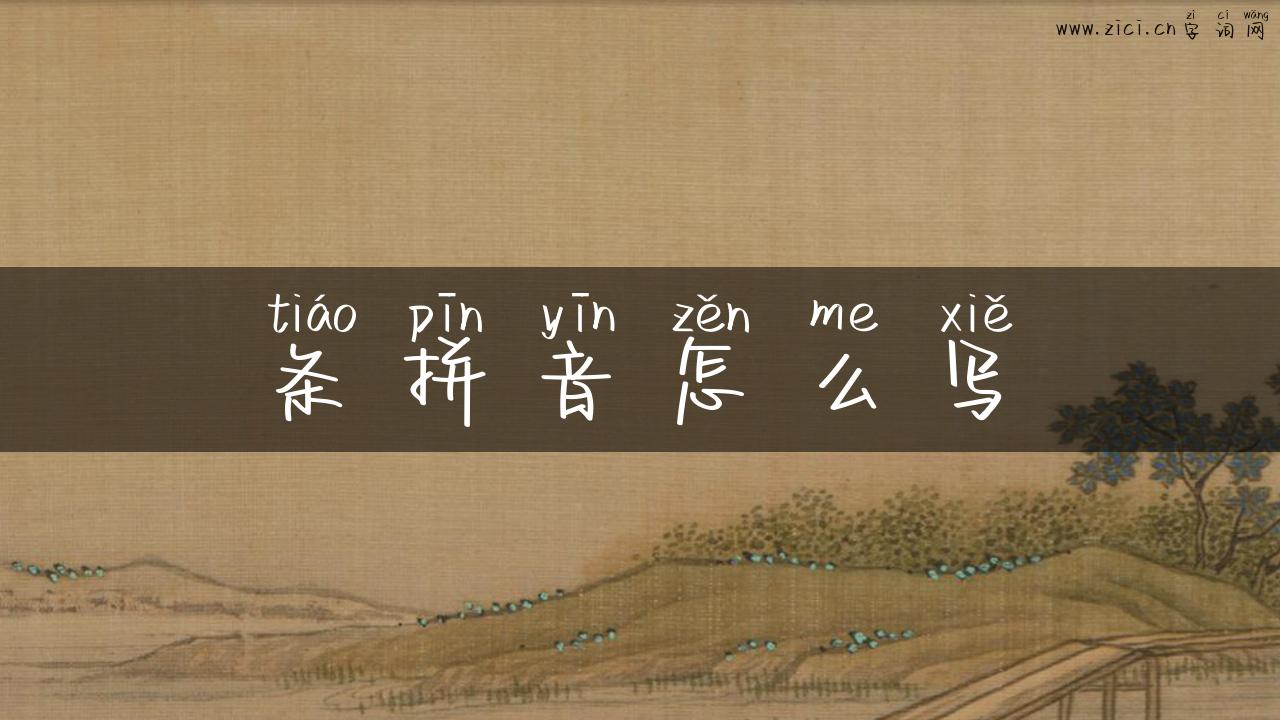 zì cí wǎng
www.zici.cn字词网
tiáo pīn yīn zěn me xiě
条拼音怎么写